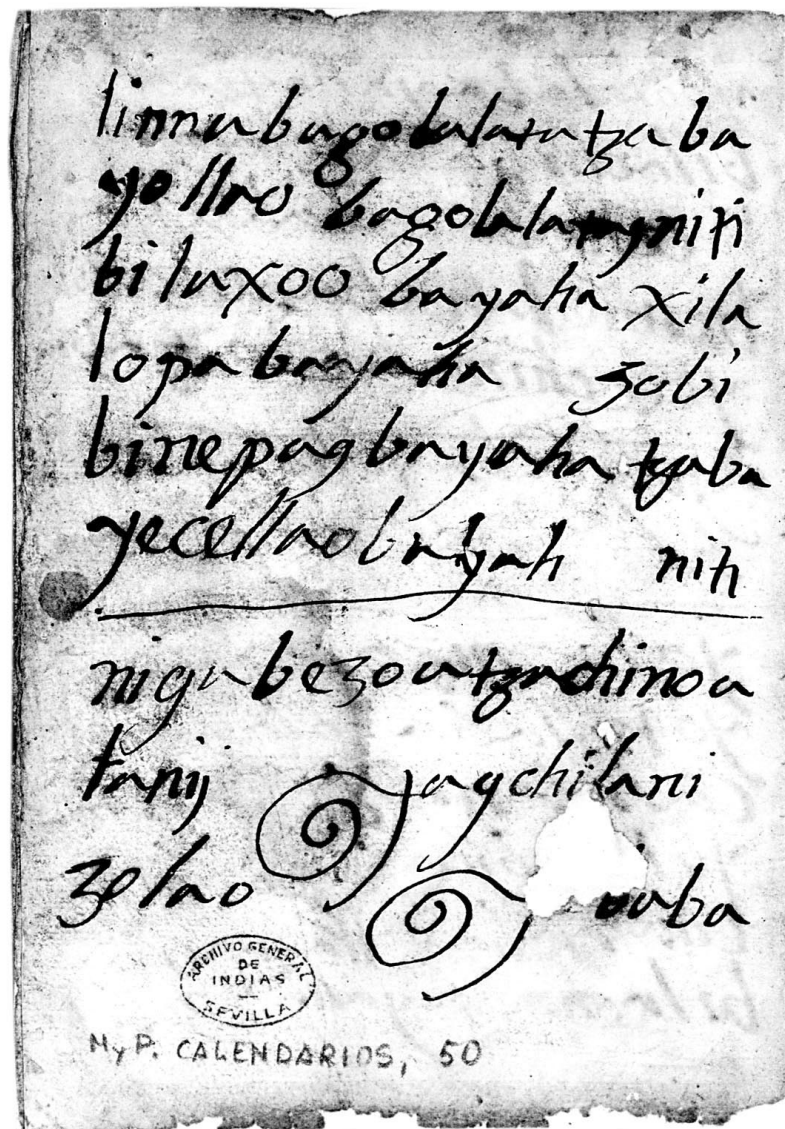 linnabagolalatatzaba
yollao bagolala niti
bilaxoo bayaha xila
lopa bayaha zobi
binepag bayaha tzaba
yecellao bayah niti
nigabezoatzachinoa
tanij yagchilani
zelao baba
ARCHIVO GENERAL
DE
INDIAS
SEVILLA
MyP. CALENDARIOS, 50